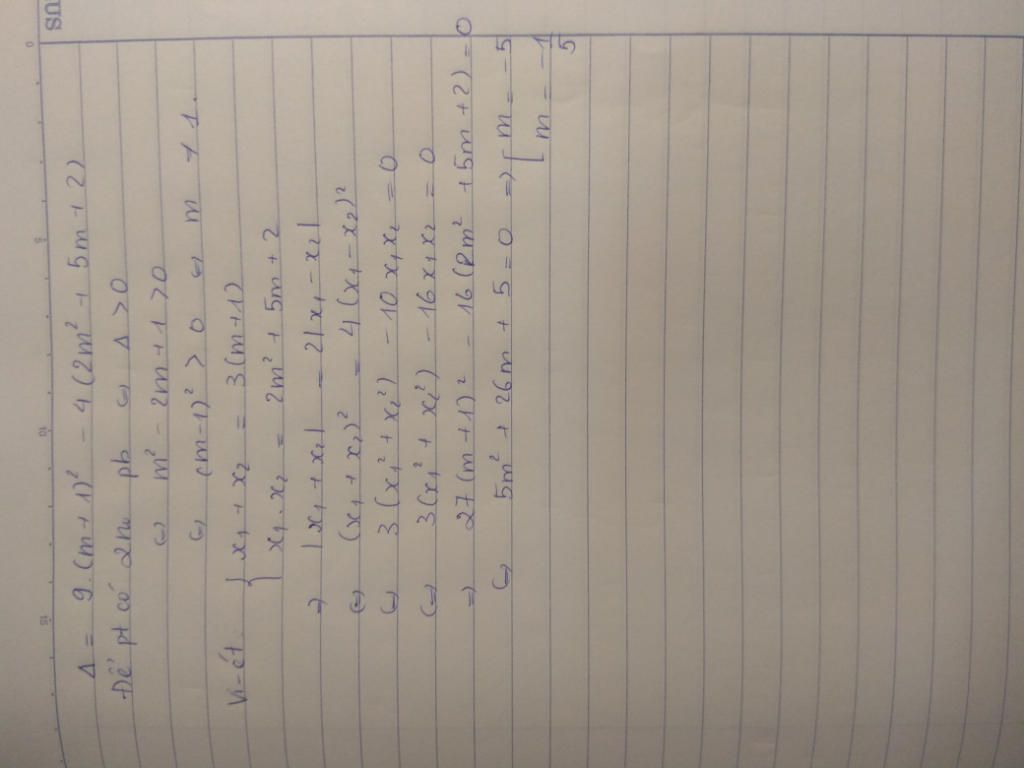 Δ = 9.(m+1)² - 4(2m² + 5m + 2)
Để pt có 2no pb ⇔ Δ > 0
⇔ m² - 2m + 1 > 0
⇔ (m-1)² > 0 ⇔ m ≠ 1.
Vi-ét. { x₁ + x₂ = 3(m+1)
x₁.x₂ = 2m² + 5m + 2
⇒ |x₁ + x₂| = 2|x₁ - x₂|
⇔ (x₁ + x₂)² = 4(x₁ - x₂)²
⇔ 3(x₁² + x₂²) - 10x₁x₂ = 0
⇔ 3(x₁² + x₂²) - 16x₁x₂ = 0
⇒ 27(m+1)² - 16(2m² + 5m + 2) = 0
⇔ 5m² + 26m + 5 = 0 ⇒ [ m = -5
m = -1/5